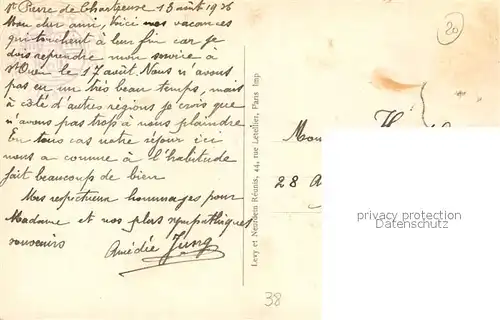 St Pierre de Chartreuse 15 août 1936
Mon cher ami, Voici nos vacances
qui touchent à leur fin car je
dois reprendre mon service à
St Ouen le 17 août. Nous n'avons
pas eu un très beau temps, mais
à côté d'autres régions je crois que
n'avons pas trop à nous plaindre
En tous cas notre séjour ici
nous a comme à l'habitude
fait beaucoup de bien
Mes respectueux hommages pour
Madame et nos plus sympathiques
souvenirs
Amédée Jung
Levy et Neurdein Réunis, 44, rue Letellier, Paris Imp
20
Mon
28
privacy protection
Datenschutz
38